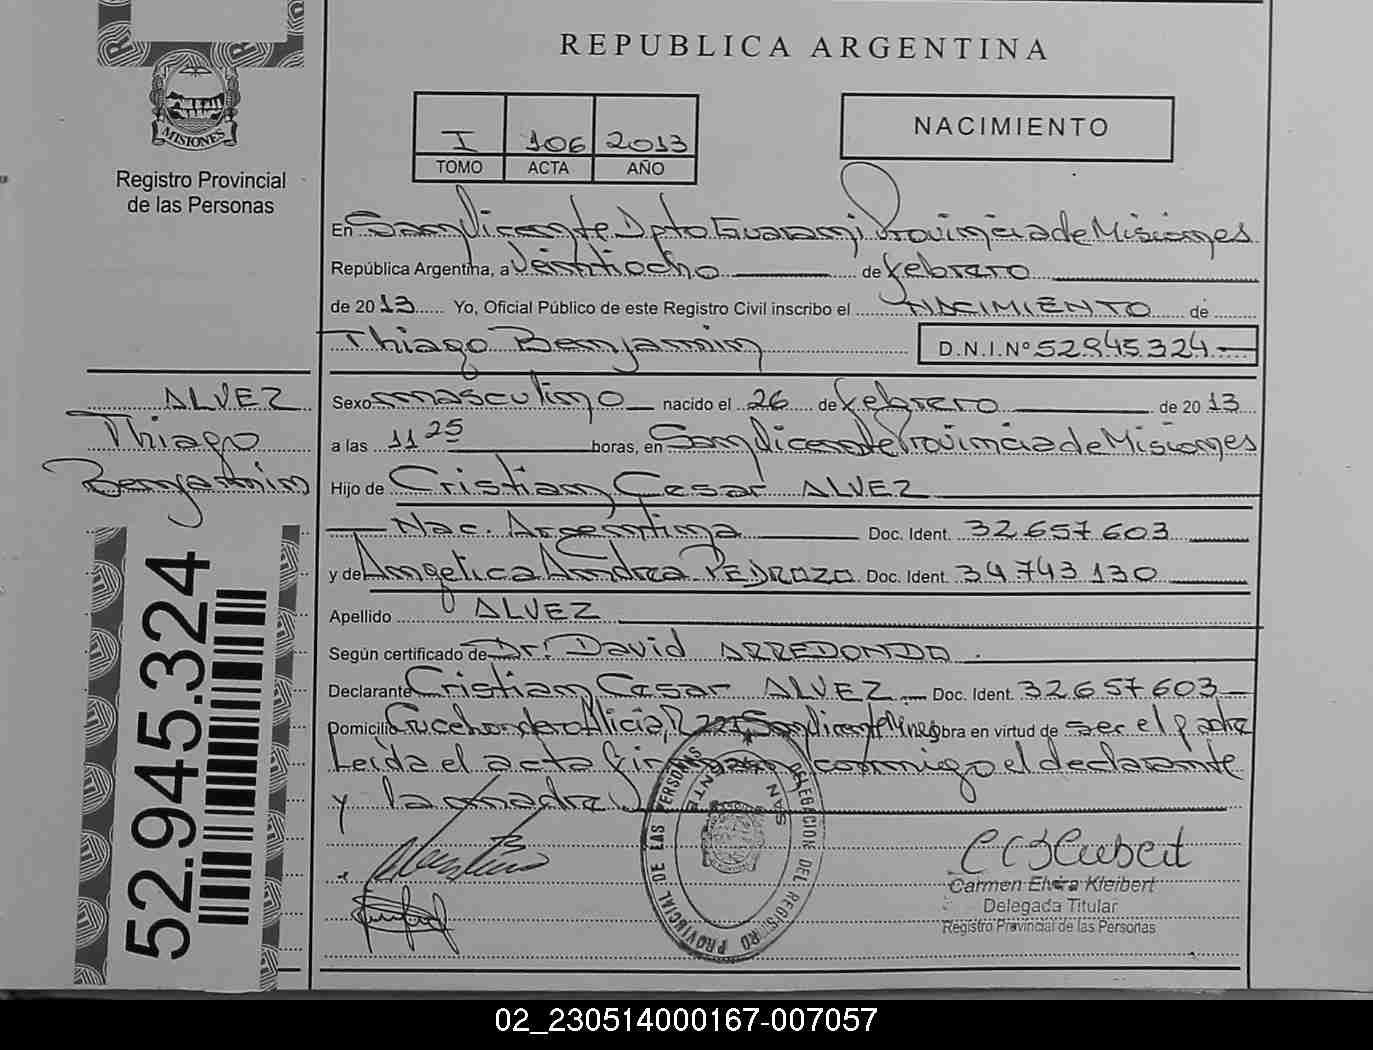 REPUBLICA ARGENTINA
MISIONES
Registro Provincial
de las Personas
I 106 2013
TOMO ACTA AÑO
NACIMIENTO
En San Vicente Dpto Guarani Provincia de Misiones
República Argentina, a Veintiocho de febrero
de 2013 Yo, Oficial Público de este Registro Civil inscribo el NACIMIENTO de
Thiago Benjamin D.N.I.Nº 52.945.324
ALVEZ
Thiago
Benjamin
Sexo masculino nacido el 26 de febrero de 2013
a las 11 25 horas, en San Vicente Provincia de Misiones
Hijo de Cristian Cesar ALVEZ
Nac. Argentina Doc. Ident. 32.657.603
y de Angelica Andrea PEDROZO Doc. Ident. 34 743 130
Apellido ALVEZ
Según certificado de Dr. David ARREDONDO.
Declarante Cristian Cesar ALVEZ Doc. Ident. 32 657 603
Domicilio Alicia, San Vicente Mnes obra en virtud de ser el padre
Leida el acta firman conmigo el declarante
y la madre
52.945.324
REGISTRO PROVINCIAL DE LAS PERSONAS DELEGACION DEL
SAN VICENTE
Carmen Elvira Kleibert
Delegada Titular
Registro Provincial de las Personas
02_230514000167-007057